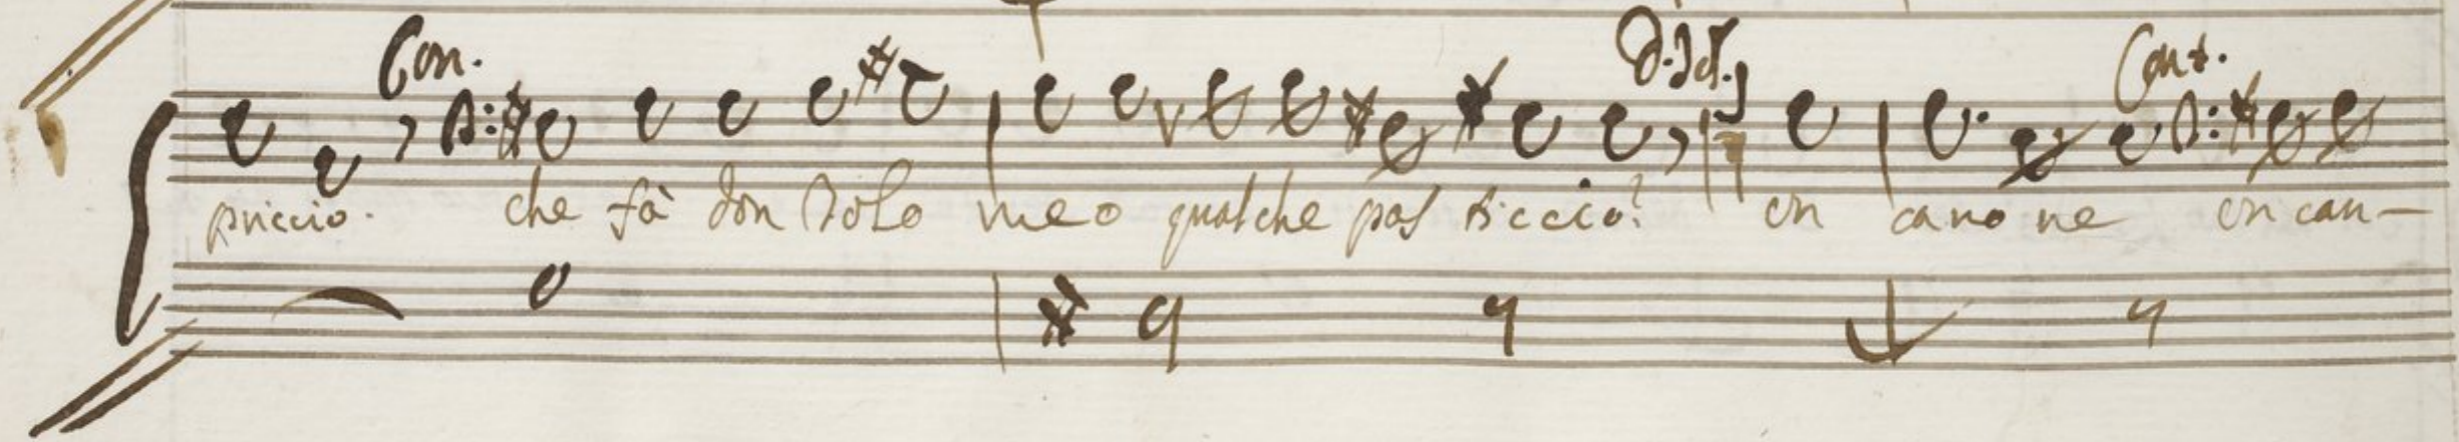 Con. D. Cont.
priccio. che fà don Tolo meo qualche pas ticcio? un cano ne un can-